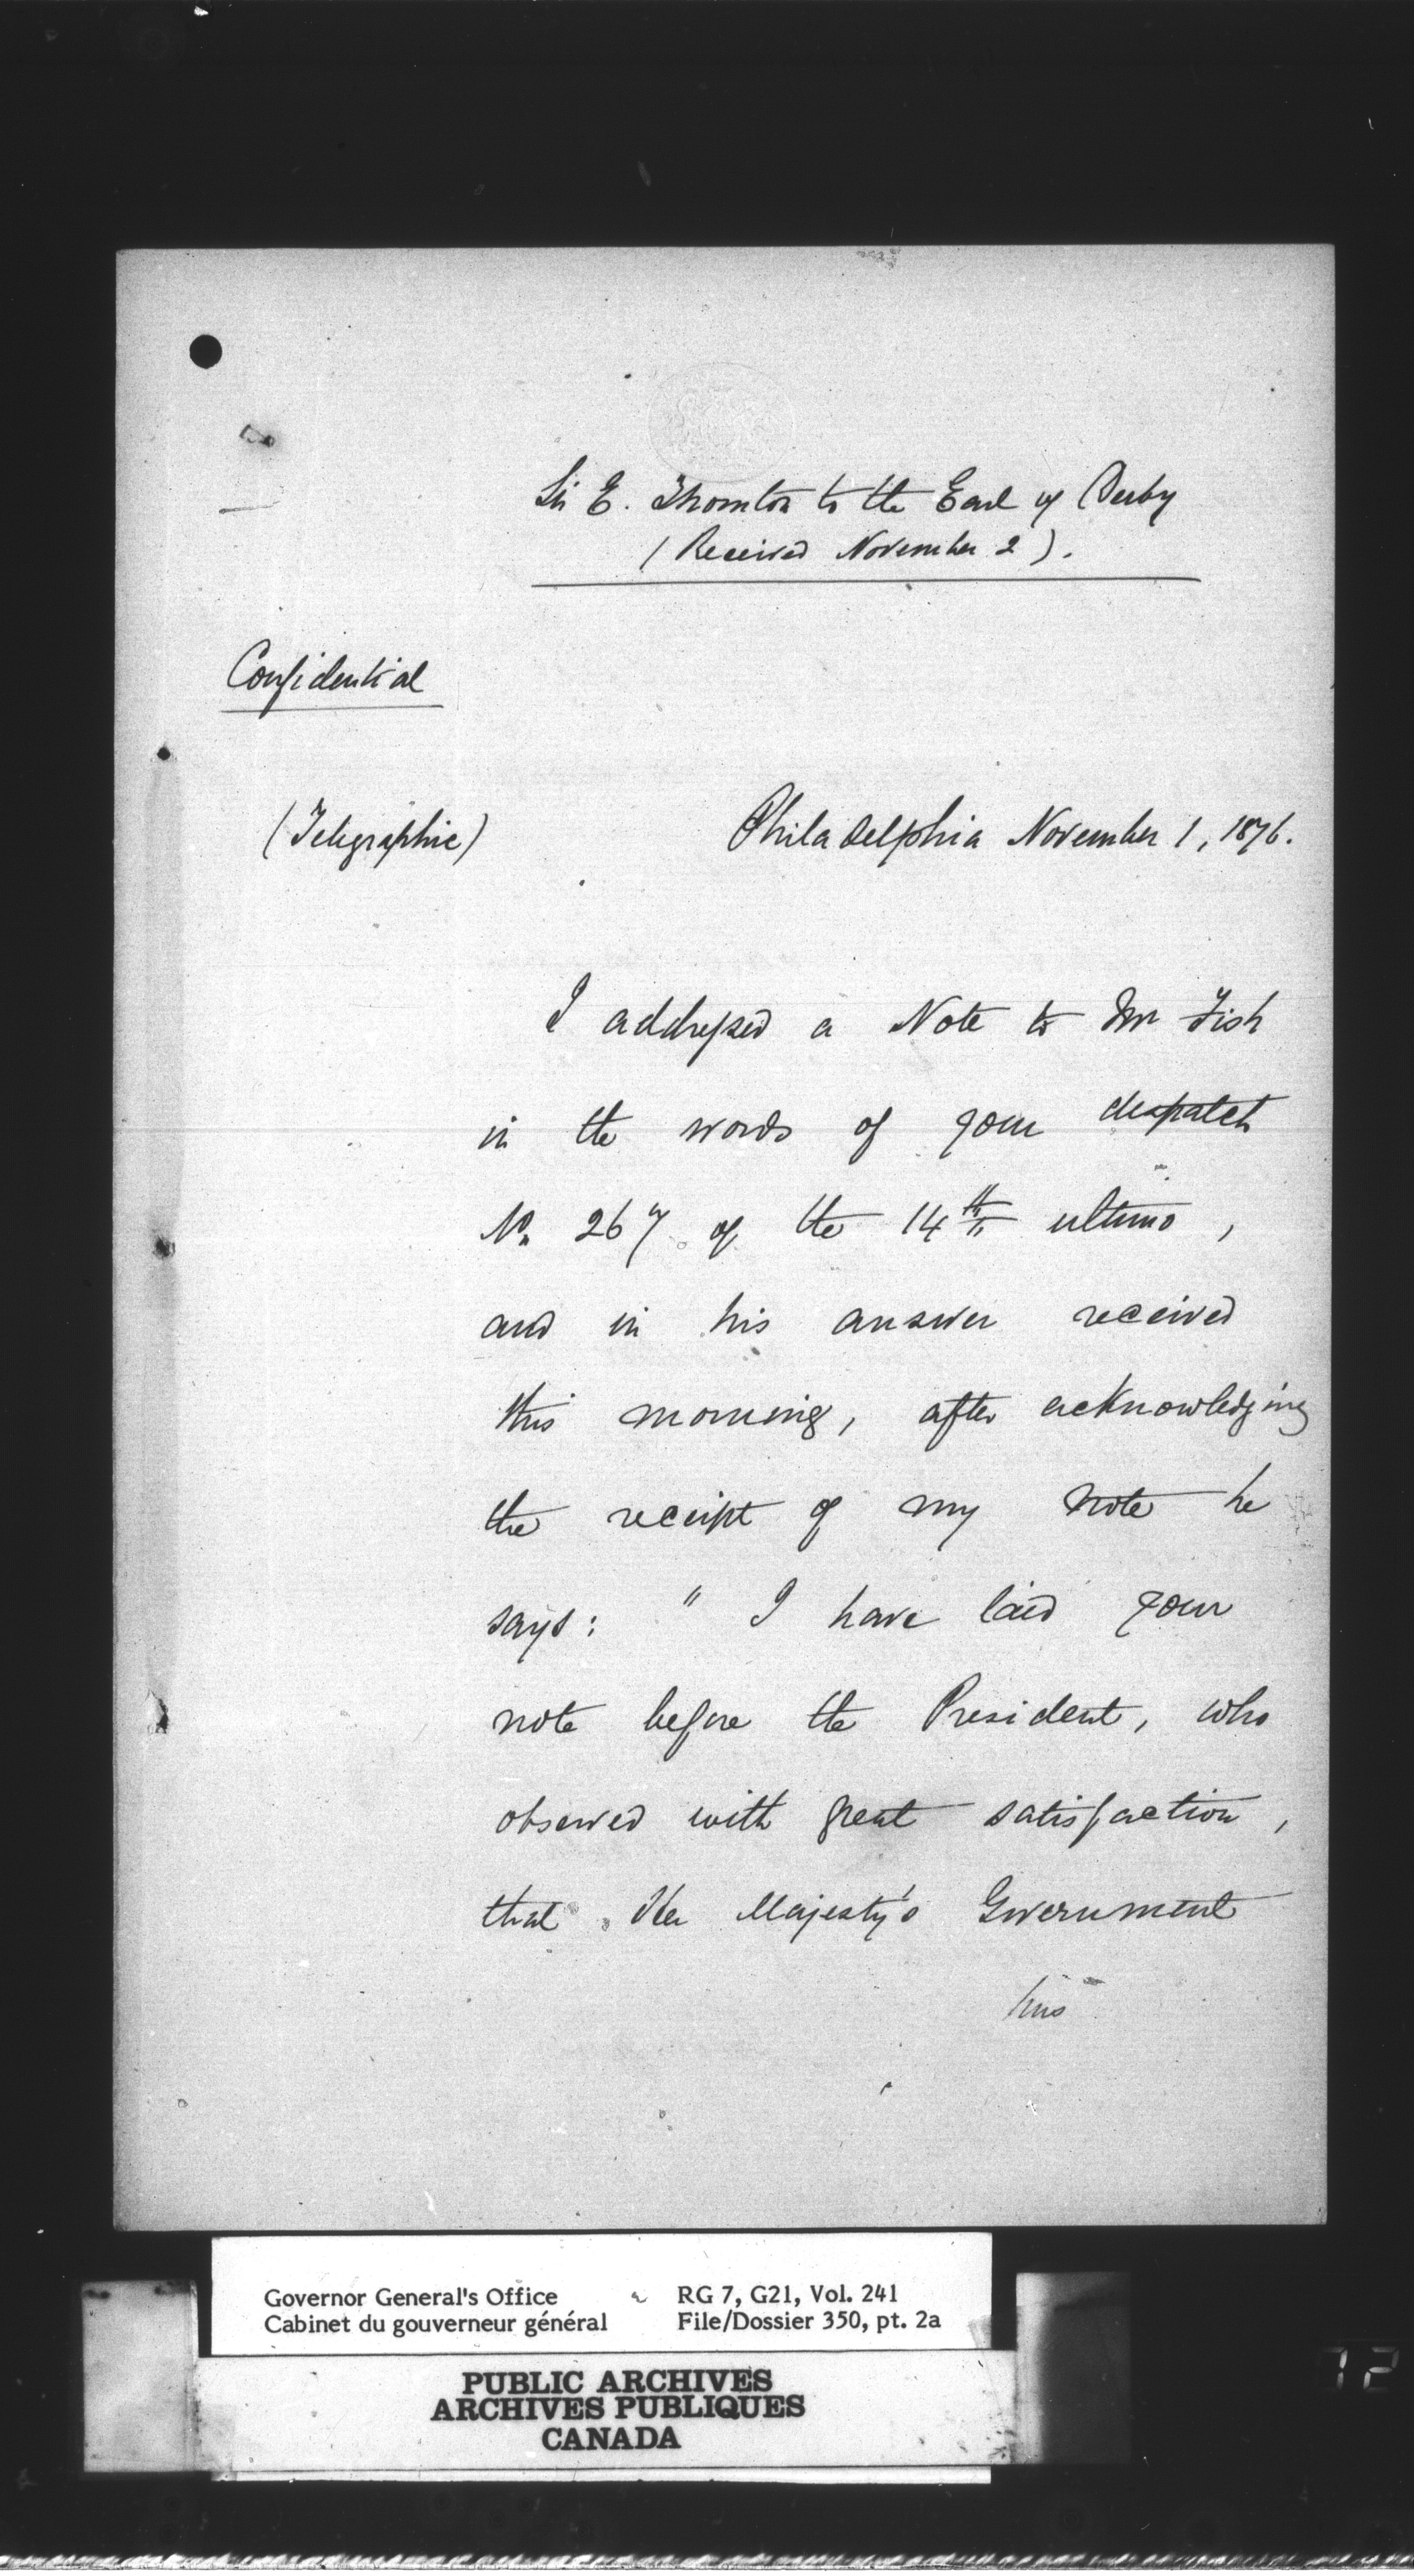 Sir E. Thornton to the Earl of Derby
(Received November 2).
Confidential
(Telegraphic)
Philadelphia November 1, 1876.
I addressed a Note to Mr Fish
in the words of your despatch
No. 267 of the 14th ultimo,
and in his answer received
this morning, after acknowledging
the receipt of my note he
says: " I have laid your
note before the President, who
observed with great satisfaction,
that Her Majesty's Government
has
Governor General's Office
Cabinet du gouverneur général
RG 7, G21, Vol. 241
File/Dossier 350, pt. 2a
PUBLIC ARCHIVES
ARCHIVES PUBLIQUES
CANADA
12